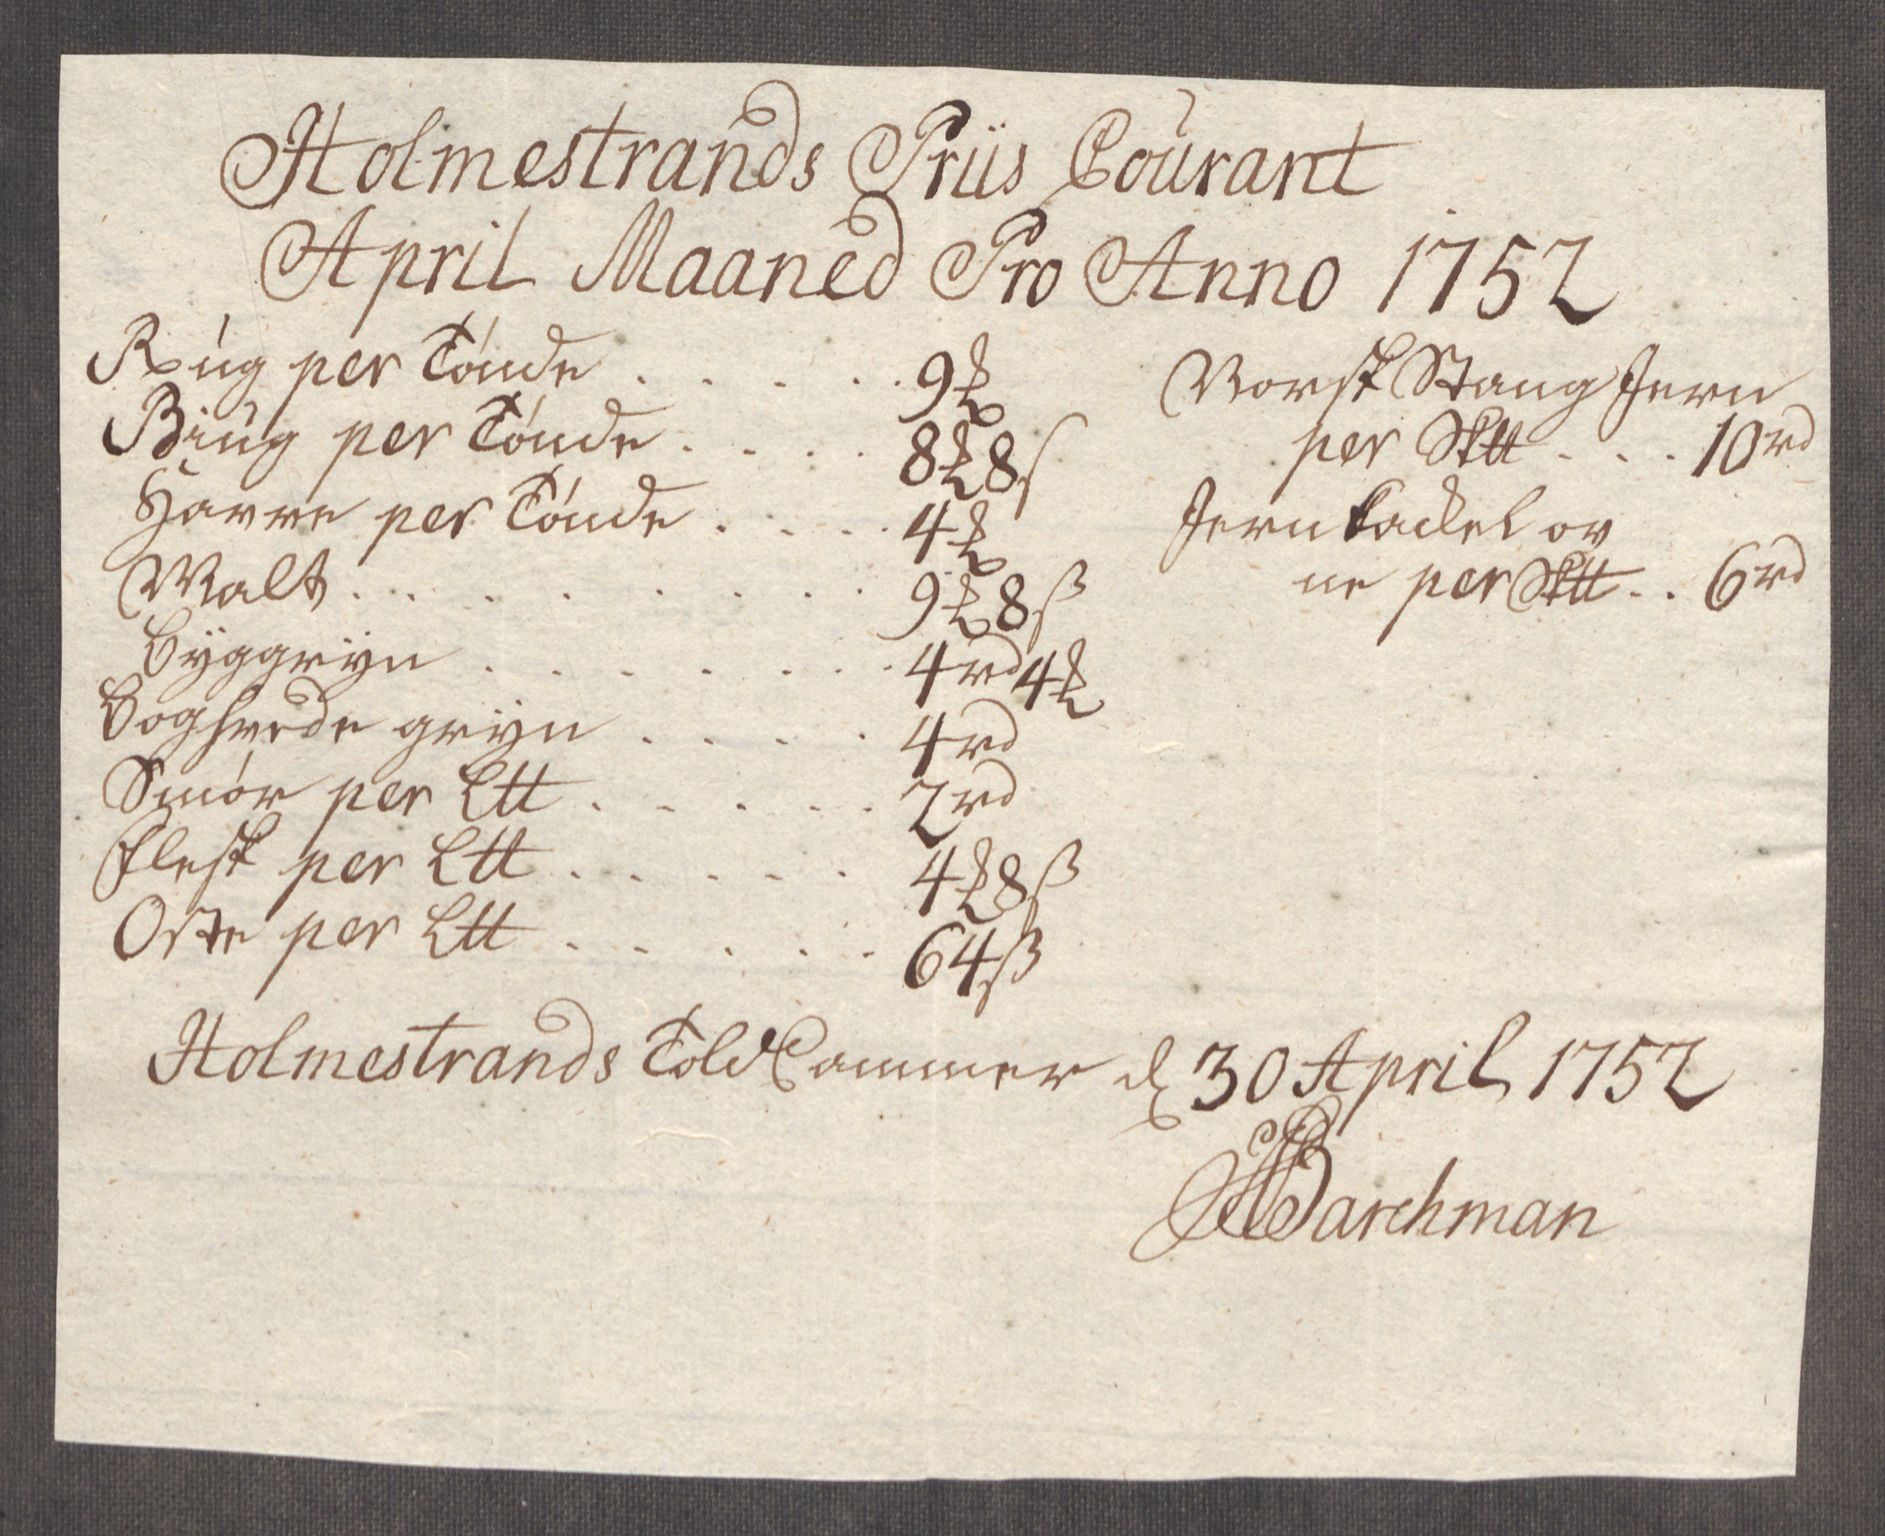 Holmestrands Priis Courant
April Maaned Pro Anno 1752
Rúg per Tónde . . . . . 9 ℔
Biúg per Tónde . . . . 8 ℔ 8 ß
Havre per Tónde . . . . 4 ℔
Malt . . . . . . . . 9 ℔ 8 ß
byggryn . . . . . . . 4 rd 4 ℔
boghvede gryn . . . . 4 rd
Smór per L℔ . . . . . 2 rd
Flesk per L℔ . . . . . 4 ℔ 8 ß
Oste per L℔ . . . . . 64 ß
Norsk Stang Jern
per Sk℔ . . . 10 rd
Jern Kackel ov
ne per Sk℔ . . 6 rd
Holmestrands Told Cammer d 30 April 1752
Barchman